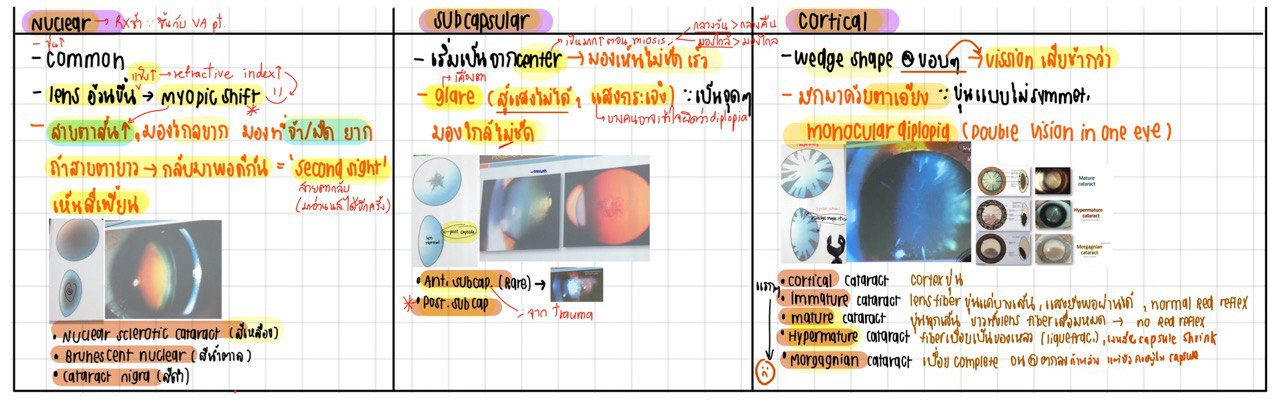 Nuclear → RXช้า ∵ ขึ้นกับ VA pt.
- common
- lens อ้วนขึ้น → myopic shift
แข็ง↑ → refractive index↑
- สายตาสั้น↑, มองไกลยาก มองที่ จ้า/มืด ยาก
ถ้าสายตายาว → กลับมาพอดีกัน = 'second sight'
สายตากลับ
(มาอ่านนส.ได้อีกครั้ง)
เห็นสีเพี้ยน
• Nuclear sclerotic cataract (สีเหลือง)
• Brunescent nuclear (สีน้ำตาล)
• Cataract nigra (สีดำ)
subcapsular
กลางวัน > กลางคืน
เป็นมากตอน miosis
มองใกล้ > มองไกล
- เริ่มเป็นจากcenter → มองเห็นไม่ชัด เร็ว
- glare (สู้แสงไม่ได้, แสงกระเจิง) ∵ เป็นจุดๆ
บางคนอาจเข้าใจผิดว่าdiplopia
มองใกล้ไม่ชัด
post capsule
• Ant. subcap. (Rare) →
* • Post. subcap
จาก trauma
cortical
- wedge shape @ ขอบๆ → vission เสียช้ากว่า
- มักมาด้วยตาเอียง ∵ ขุ่นแบบไม่symmet.
monocular diplopia (Double vision in one eye)
Mature
cataract
Hypermature
cataract
Morgagnian
cataract
• cortical cataract cortexขุ่น
• immature cataract lens fiber ขุ่นแค่บางเส้น, แสงยังพอผ่านได้, normal red reflex
• mature cataract ขุ่นทุกเส้น ขาวทั้งlens fiberเสื่อมหมด → no red reflex
• Hypermature cataract fiberเปื่อยเป็นของเหลว (liquefrac.), capsule shrink
• Morgagnian cataract เปื่อย complete capsule